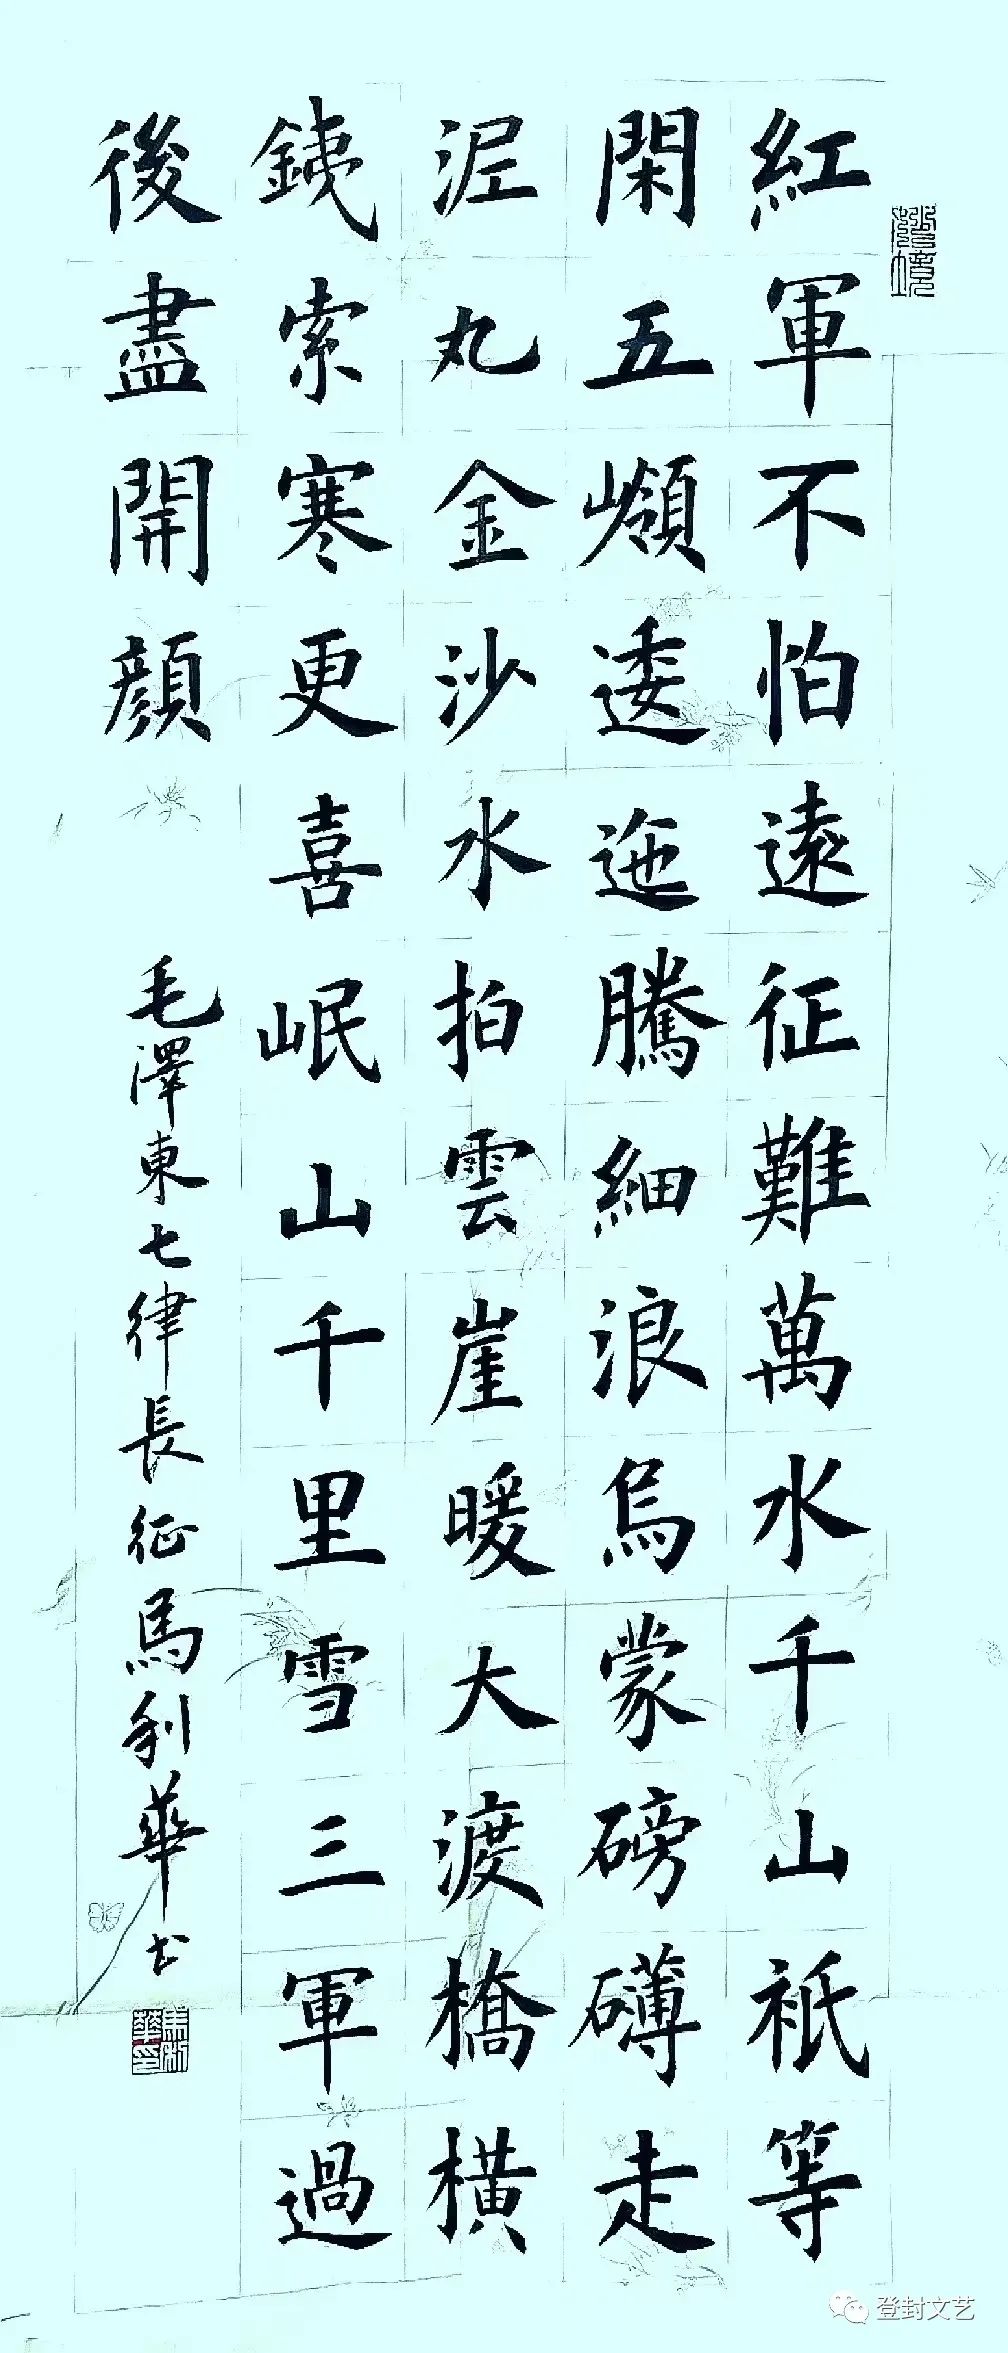 紅軍不怕遠征難萬水千山祇等
閑五嶺逶迤騰細浪烏蒙磅礴走
泥丸金沙水拍雲崖暖大渡橋橫
銕索寒更喜岷山千里雪三軍過
後盡開顏
毛澤東七律長征馬利華书
馬利華印
登封文艺